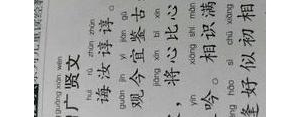 guǎng xián wén
广贤文
huì rǔ zhūn zhūn
诲汝谆谆。
guān jīn yí jiàn gǔ
观今宜鉴古
jiāng xīn bǐ xīn
，将心比心
yín xiāng shí mǎn
吟。相识满
hǎo sì chū xiāng
逢好似初相